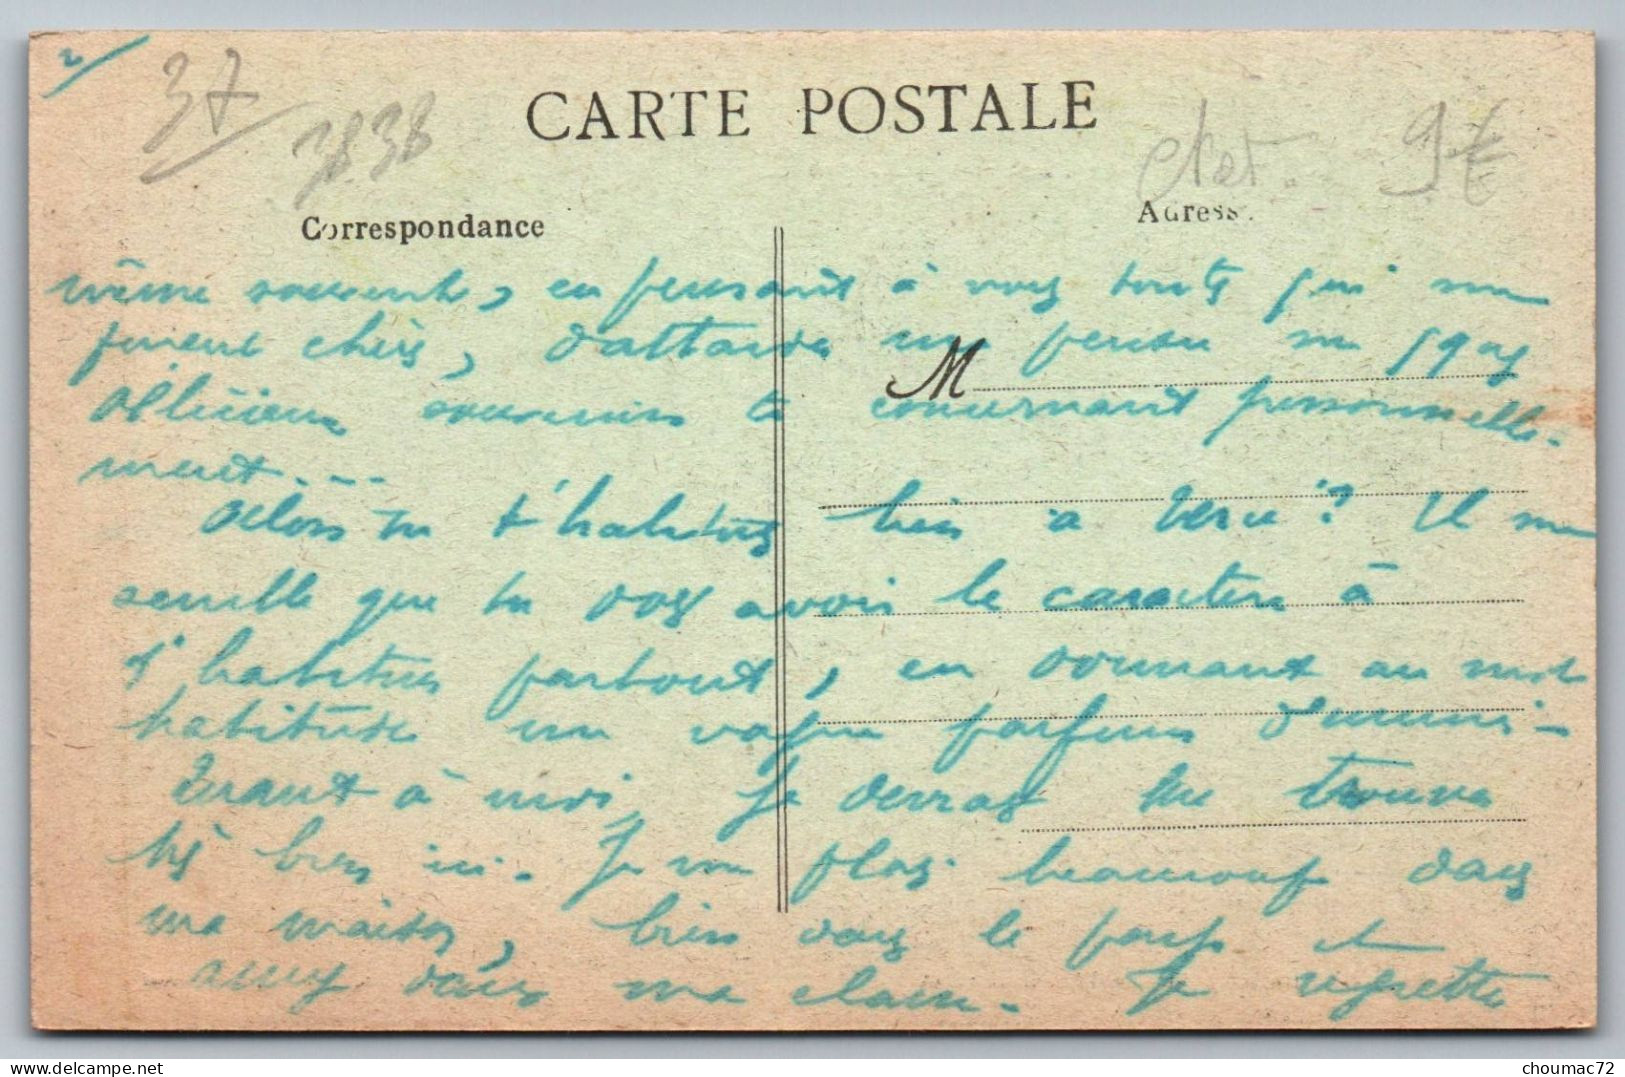 2/
37
3838
CARTE POSTALE
9€
Correspondance
Adresse
même souvent, en pensant à vous tous qui me
furent chers, d'attarder un penser
délicieux souvenirs te concernant personnelle-
ment...
Alors tu t'habitues bien à ? Il me
semble que tu dois avoir le caractère à
t'habituer partout, en donnant au mot
habitude un vague parfum d'ennui-
Quant à moi, je me trouve
très bien ici. Je me plais beaucoup dans
ma maison, bien dans le pays et
aussi dans ma classe. Je regrette
M
choumac72